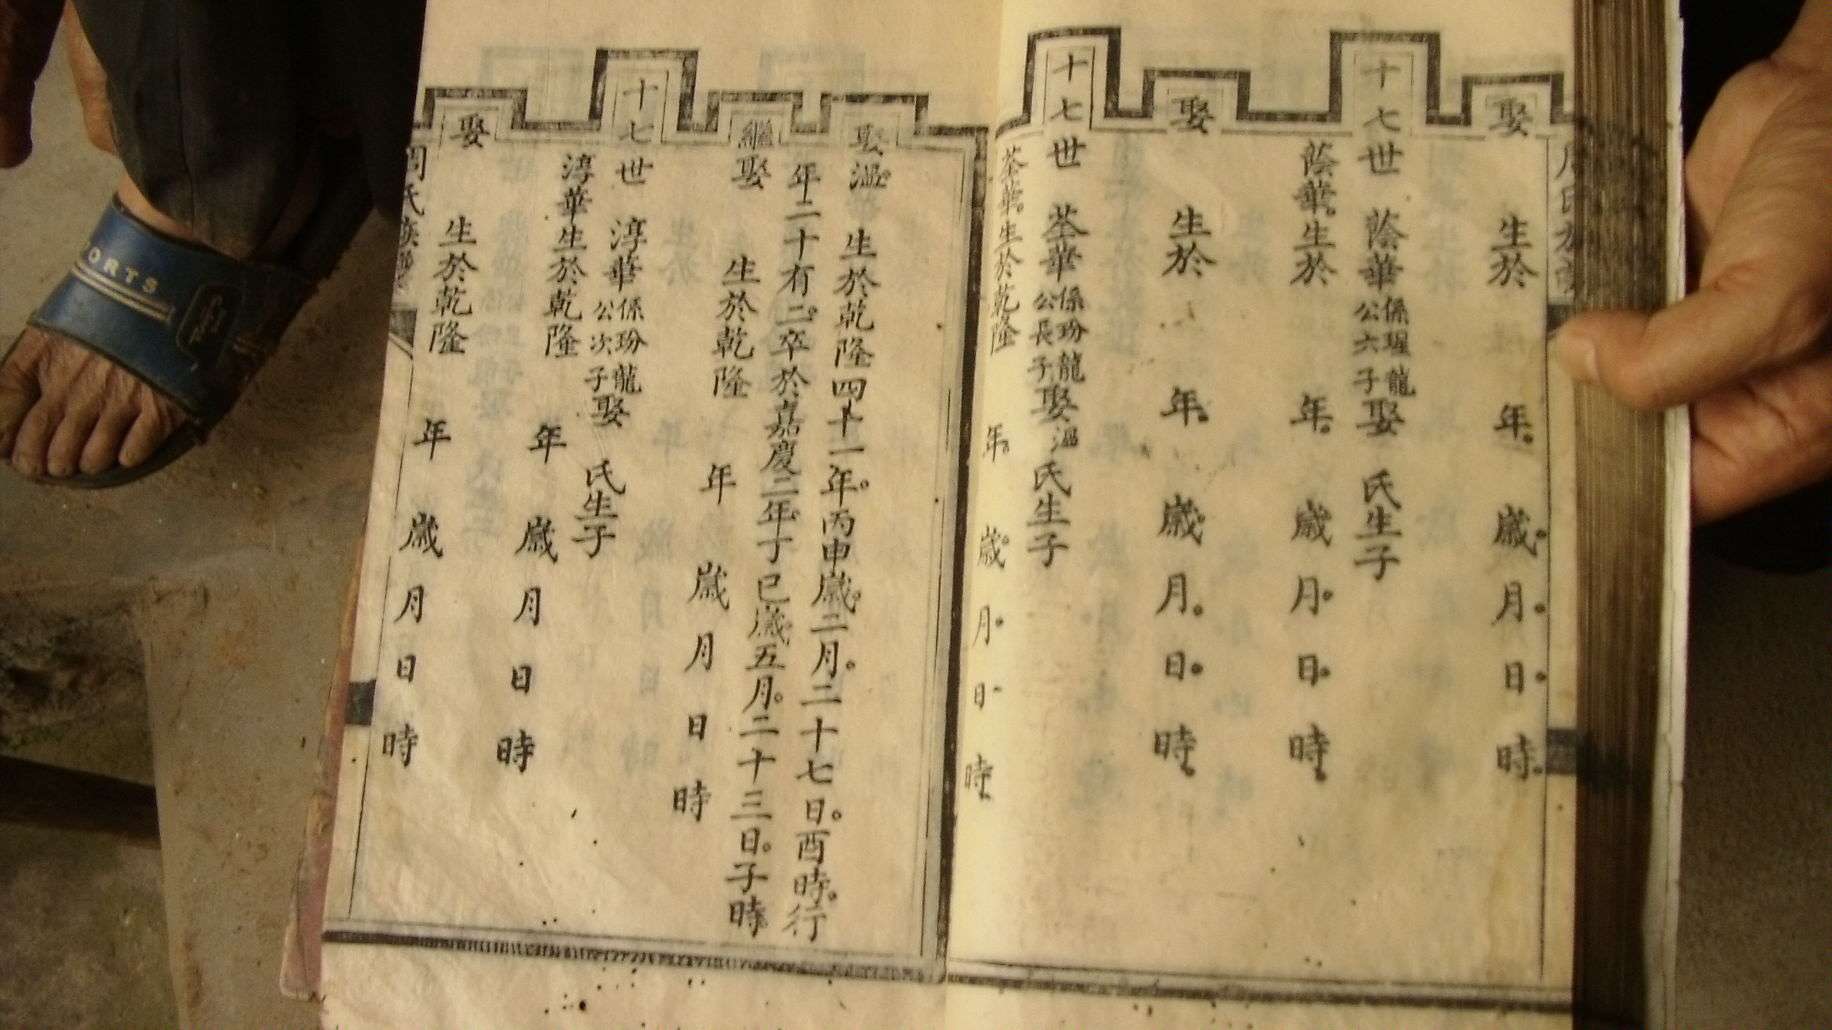 周氏族譜
娶 生於 年 歲 月 日 時
十七世 蔭華 係瑆龍公六子 娶 氏生子
蔭華生於 年 歲 月 日 時
娶 生於 年 歲 月 日 時
十七世 荃華 係玢龍公長子 娶溫氏生子
荃華生於乾隆 年 歲 月 日 時
娶溫 生於乾隆四十一年丙申歲二月二十七日酉時行
年二十有二卒於嘉慶二年丁巳歲五月二十三日子時
繼娶 生於乾隆 年 歲 月 日 時
十七世 淳華 係玢龍公次子 娶 氏生子
淳華生於乾隆 年 歲 月 日 時
娶 生於乾隆 年 歲 月 日 時
周氏族譜
ORTS